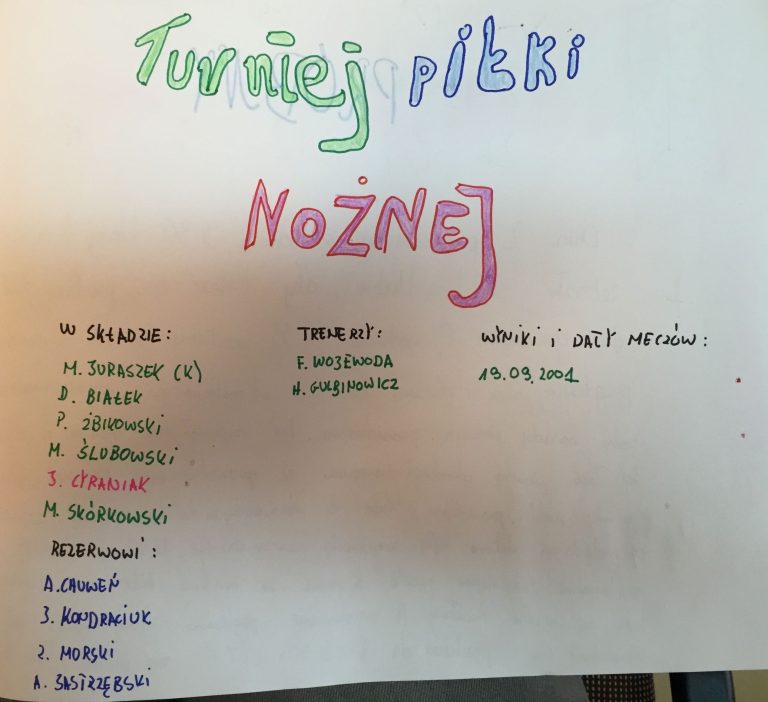 Turniej piłki
NOŻNEJ
W SKŁADZIE:
M. JURASZEK (K)
D. BIAŁEK
P. ŻBIKOWSKI
M. ŚLUBOWSKI
J. CYRANIAK
M. SKÓRKOWSKI
REZERWOWI:
A. CAUWEŃ
J. KONDRACIUK
Z. MORSKI
A. JASTRZĘBSKI
TRENERZY:
F. WOJEWODA
H. GULBINOWICZ
WYNIKI i DATY MECZÓW:
19.09.2001